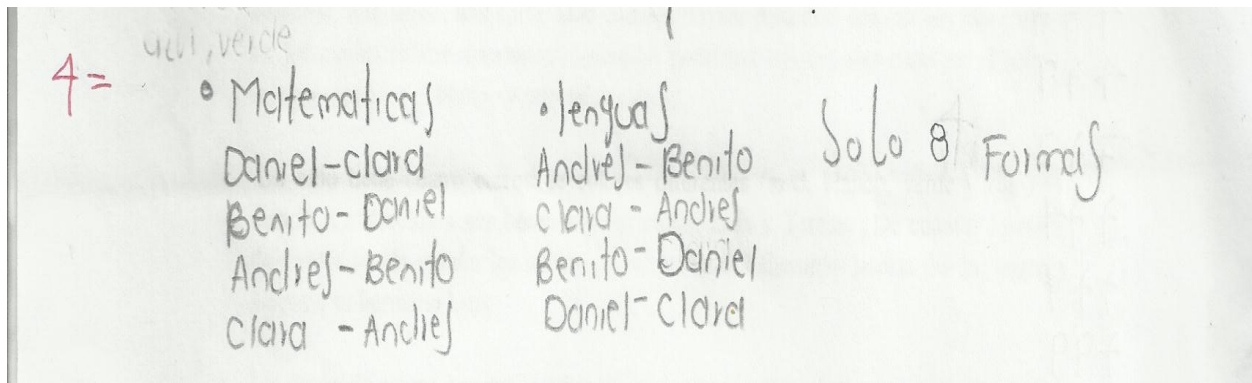 azul, verde
4=
• Matematicas
Daniel-Clara
Benito-Daniel
Andres-Benito
Clara-Andres
• lenguas
Andres-Benito
Clara-Andres
Benito-Daniel
Daniel-Clara
Solo 8 Formas